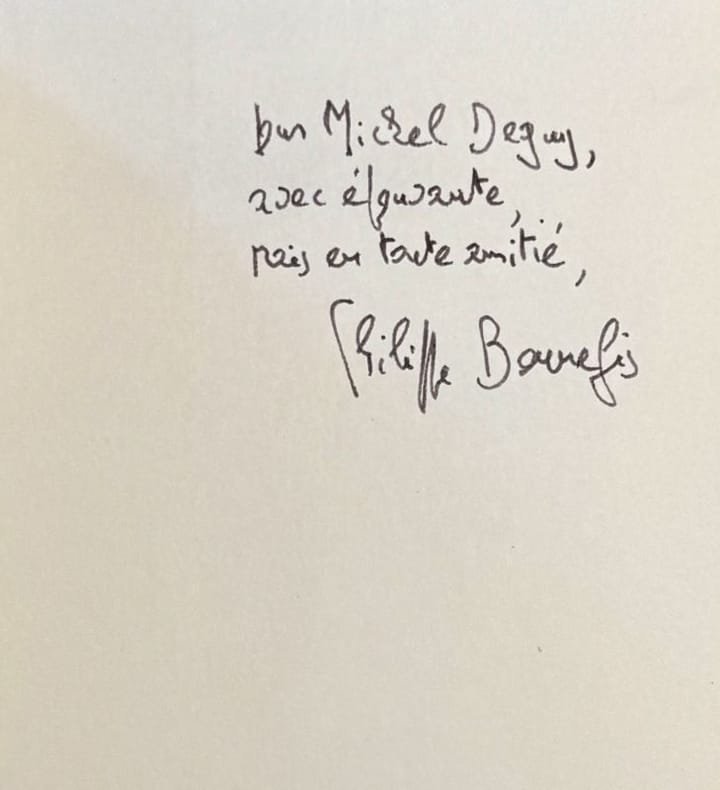 pour Michel Deguy,
avec épouvante,
mais en toute amitié,
Philippe Bonnefis